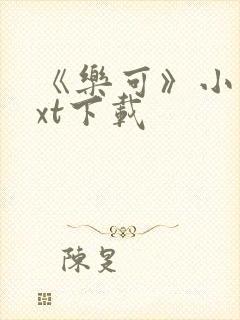 《樂可》小
xt下載
陳旻